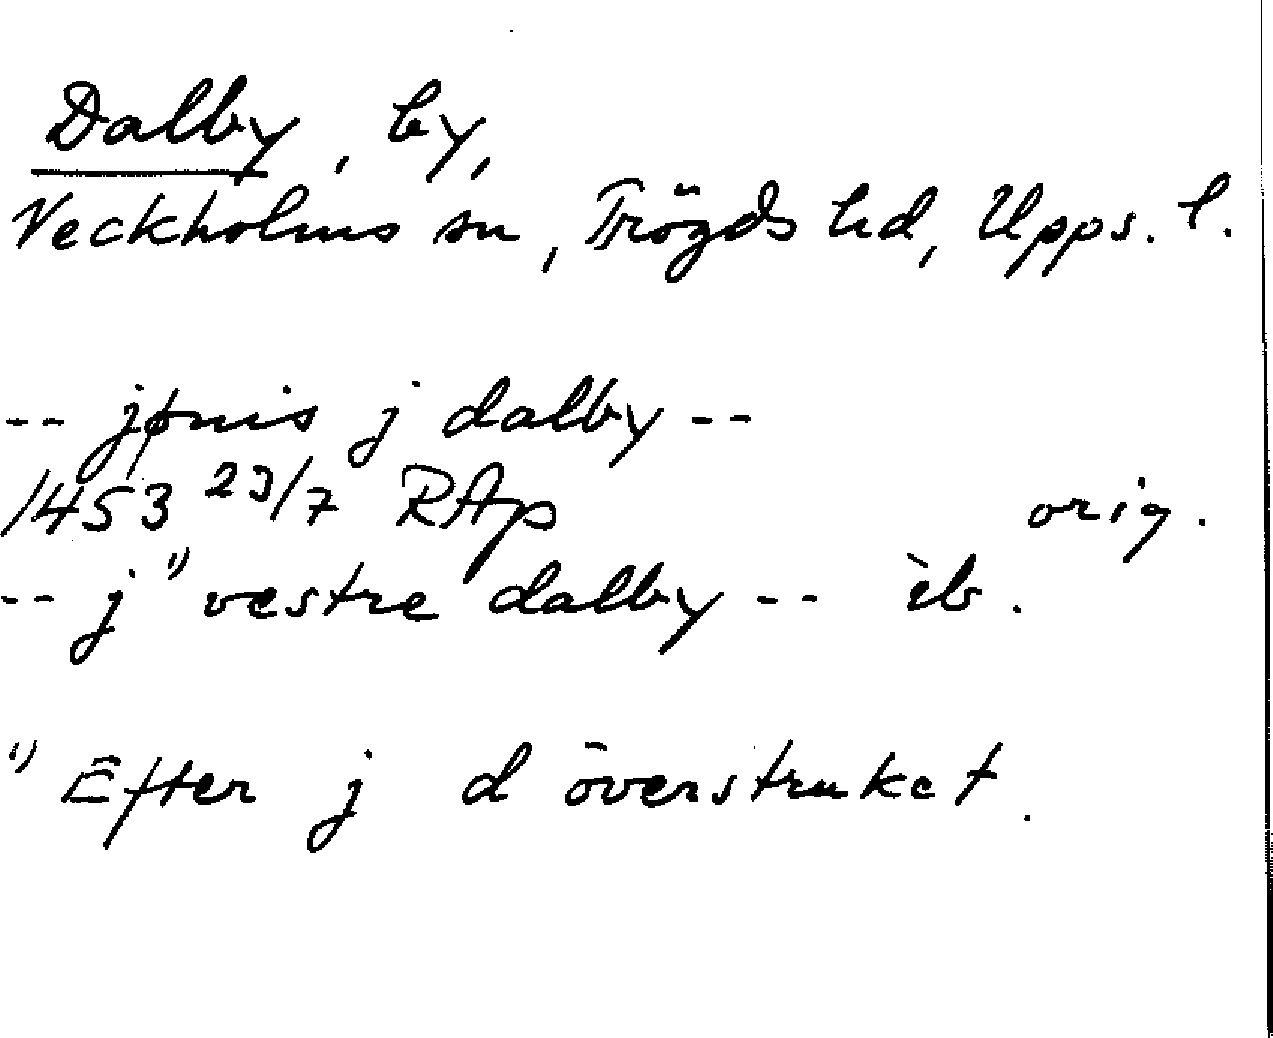 Dalby, by,
Veckholms sn, Trögds hd, Upps. l.
-- jønis j dalby --
1453 23/7 RAp orig.
-- j 1) vestre dalby -- ib.
1) Efter j d överstruket.